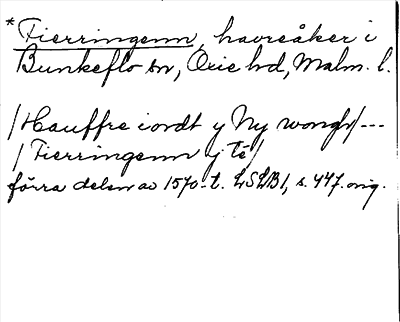 *Fierringenn, havreåker i
Bunkeflo sn, Oxie hd, Malm. l.
/Hauffre iordt y Ny wongh/---
/Fierringenn y té/
förra delen av 1570-t. LSLB1, s. 447. orig.